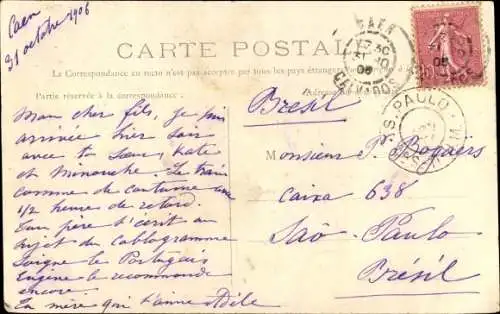 Caen
31 octobre 1906
CARTE POSTALE
La Correspondance au recto n'est pas acceptée par tous les pays étrangers
Partie réservée à la correspondance.
CAEN
17 30
31 10
06
CALVADOS
S. PAULO
Brésil
Mon cher fils, je suis
arrivée hier soir
avec ta Sœur, Kate
et Minouche. Le train
comme de coutume avec
1/2 heure de retard.
Ton père t'écrit au
sujet du Cablogramme
Soigne le Portugais
Eugène le recommande
encore.
Ta mère qui t'aime Adèle
Monsieur P. Bogaërs
Caixa 638
Saô-Paulo
Brésil